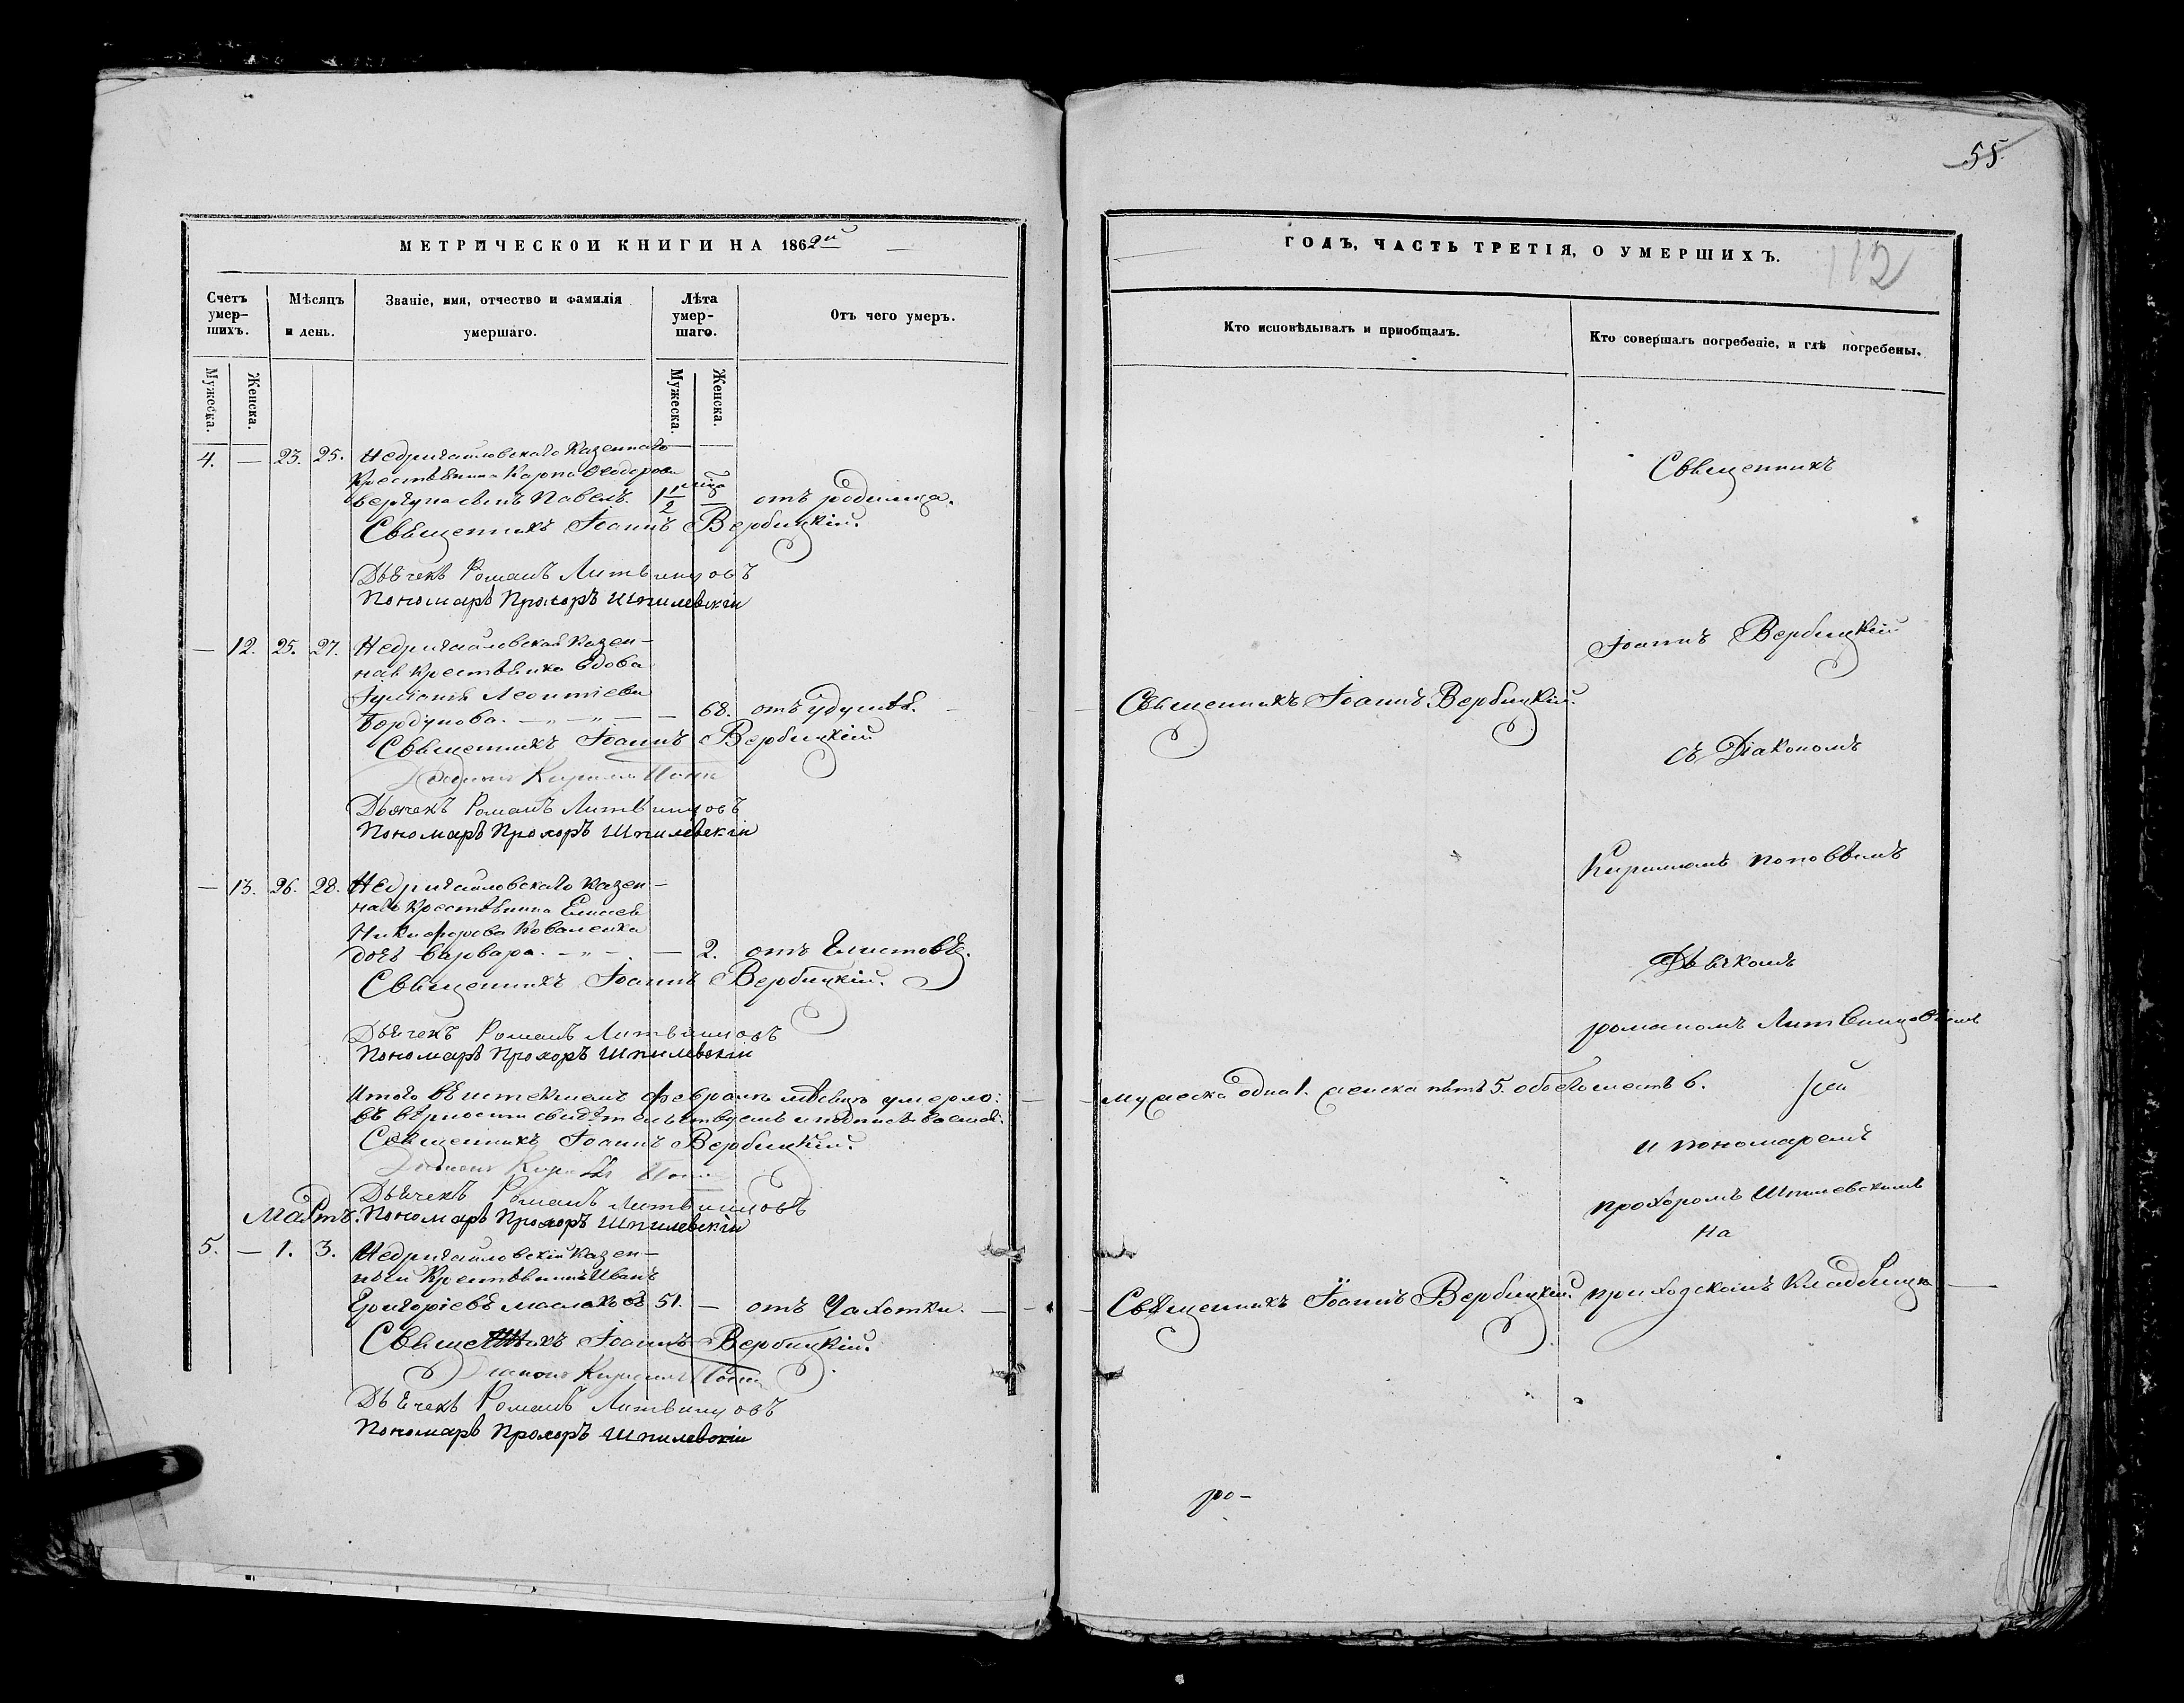 55.
МЕТРИЧЕСКОЙ КНИГИ НА 1862й
Счетъ умер-
шихъ.
Мѣсяцъ
и день.
Званіе, имя, отчество и фамилія
умершаго.
Лѣта
умер-
шаго.
Отъ чего умеръ.
Мужеска. Женска. Мужеска. Женска.
4. — 23. 25. Недригайловскаго Казеннаго
Крестьянина Карпа Ѳеодорова
сынъ Павелъ. 1 1/2 — отъ родимца.
Священникъ Іоаннъ Вербицкій.
Дьячекъ Романъ Литвинцовъ
Пономарь Прохоръ Шпилевскій
— 12. 25. 27. Недригайловская Казен-
ная Крестьянка вдова
Іуліанія Леонтіева
Бордунова. — „ — „ — — 68. отъ удушья.
Священникъ Іоаннъ Вербицкій
Кириллъ
Дьячекъ Романъ Литвинцовъ
Пономарь Прохоръ Шпилевскій
— 13. 26. 28. Недригайловскаго Казен-
наго Крестьянина Елисея
Никифорова Коваленка
дочь Варвара. — „ — — 2. отъ Глистовъ.
Священникъ Іоаннъ Вербицкій.
Дьячекъ Романъ Литвинцовъ
Пономарь Прохоръ Шпилевскій
Итого въ истекшемъ февралѣ мѣсяцѣ умерло:
въ вѣрности свидѣтельствуемъ и подписываемся:
Священникъ Іоаннъ Вербицкій.
Дьячекъ Романъ Литвинцовъ
Мартъ. Пономарь Прохоръ Шпилевскій
5. — 1. 3. Недригайловскій Казен-
ный Крестьянинъ Иванъ
Григоріевъ Маслаковъ 51. — отъ Чахотки.
Священникъ Іоаннъ Вербицкій.
Діаконъ Кириллъ
Дьячекъ Романъ Литвинцовъ
Пономарь Прохоръ Шпилевскій
ГОДЪ, ЧАСТЬ ТРЕТІЯ, О УМЕРШИХЪ.
112
Кто исповѣдывалъ и приобщалъ.
Кто совершалъ погребеніе, и гдѣ погребены.
Священникъ
Іоаннъ Вербицкій
Священникъ Іоаннъ Вербицкій.
съ Діакономъ
Кириломъ Поповымъ
Дьячкомъ
Романомъ Литвинцовымъ
мужеска одна 1. женска пять 5. обоего шесть 6.
и пономаремъ
Прохоромъ Шпилевскимъ
на
Священникъ Іоаннъ Вербицкій. приходскомъ Кладбищѣ
ро-